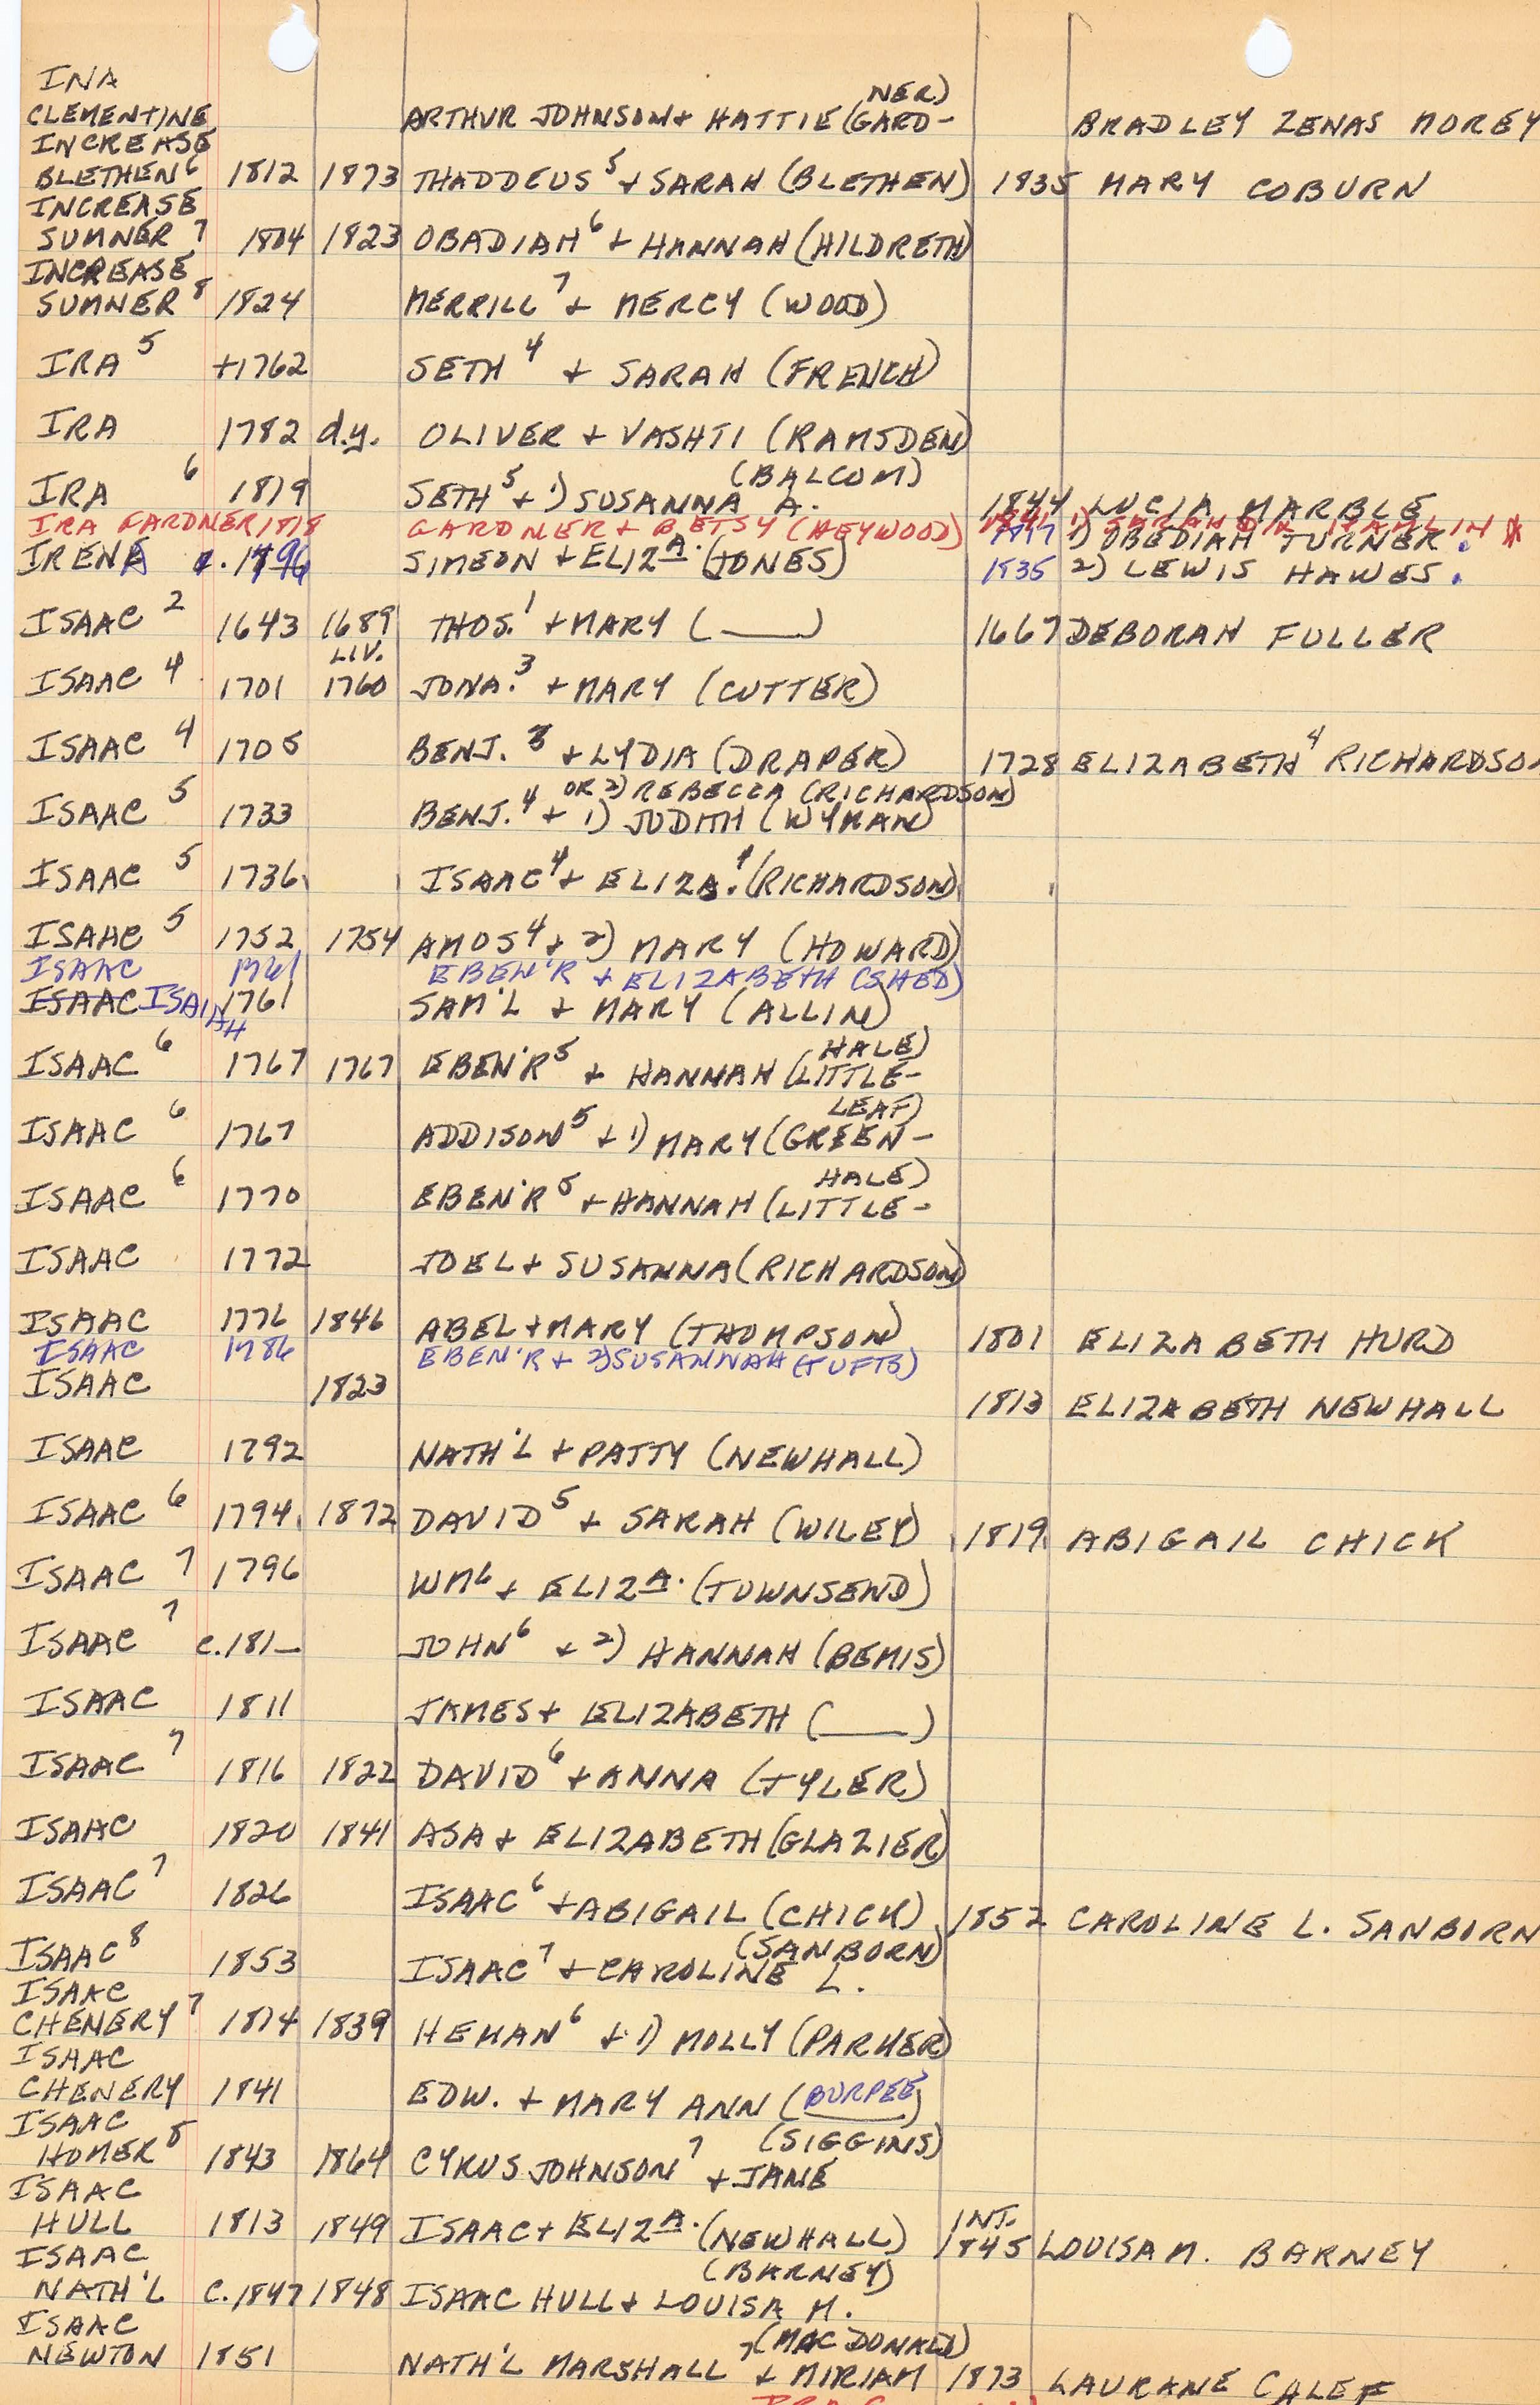 INA
NER)
CLEMENTINE ARTHUR JOHNSON + HATTIE (GARD- BRADLEY ZENAS MOREY
INCREASE
BLETHEN 6 1812 1873 THADDEUS 5 + SARAH (BLETHEN) 1835 MARY COBURN
INCREASE
SUMNER 7 1804 1823 OBADIAH 6 + HANNAH (HILDRETH)
INCREASE
SUMNER 8 1824 MERRILL 7 + MERCY (WOOD)
IRA 5 +1762 SETH 4 + SARAH (FRENCH)
IRA 1782 d.y. OLIVER + VASHTI (RAMSDEN)
(BALCOM)
IRA 6 1819 SETH 5 + 1) SUSANNA A. 1844 LUCIA MARBLE
IRA GARDNER 1818 GARDNER + BETSY (HEYWOOD) 1841 1) SARAH HAMLIN *
IRENA c. 1796 SIMEON + ELIZA. (JONES) 1817 1) OBEDIAH TURNER.
1835 2) LEWIS HAWES.
ISAAC 2 1643 1689 THOS. 1 + MARY ( ___ ) 1667 DEBORAH FULLER
LIV.
ISAAC 4 1701 1760 JONA. 3 + MARY (CUTTER)
ISAAC 4 1705 BENJ. 3 + LYDIA (DRAPER) 1728 ELIZABETH 4 RICHARDSON
OR 2) REBECCA (RICHARDSON)
ISAAC 5 1733 BENJ. 4 + 1) JUDITH (WYMAN)
ISAAC 5 1736 ISAAC 4 + ELIZA. 4 (RICHARDSON)
ISAAC 5 1752 1754 AMOS 4 + 2) MARY (HOWARD)
ISAAC 1761 EBEN'R + ELIZABETH (SHED)
ISAAC ISAIAH 1761 SAM'L + MARY (ALLIN)
HALE)
ISAAC 6 1767 1767 EBEN'R 5 + HANNAH (LITTLE-
LEAF)
ISAAC 6 1767 ADDISON 5 + 1) MARY (GREEN-
HALE)
ISAAC 6 1770 EBEN'R 5 + HANNAH (LITTLE-
ISAAC 1772 JOEL + SUSANNA (RICHARDSON)
ISAAC 1776 1846 ABEL + MARY (THOMPSON) 1801 ELIZABETH HURD
ISAAC 1786 EBEN'R + 2) SUSANNAH (TUFTS)
ISAAC 1823 1813 ELIZABETH NEWHALL
ISAAC 1792 NATH'L + PATTY (NEWHALL)
ISAAC 6 1794 1872 DAVID 5 + SARAH (WILEY) 1819 ABIGAIL CHICK
ISAAC 7 1796 WM 6 + ELIZA. (TOWNSEND)
ISAAC 7 c.181_ JOHN 6 + 2) HANNAH (BEMIS)
ISAAC 1811 JAMES + ELIZABETH ( ___ )
ISAAC 7 1816 1822 DAVID 6 + ANNA (TYLER)
ISAAC 1820 1841 ASA + ELIZABETH (GLAZIER)
ISAAC 7 1826 ISAAC 6 + ABIGAIL (CHICK) 1852 CAROLINE L. SANBORN
(SANBORN)
ISAAC 8 1853 ISAAC 7 + CAROLINE L.
ISAAC
CHENERY 7 1814 1839 HEMAN 6 + 1) MOLLY (PARKER)
ISAAC
CHENERY 1841 EDW. + MARY ANN (BURPEE)
ISAAC
(SIGGINS)
HOMER 8 1843 1864 CYRUS JOHNSON 7 + JANE
ISAAC
INT.
HULL 1813 1849 ISAAC + ELIZA. (NEWHALL) 1845 LOUISA M. BARNEY
ISAAC
(BARNEY)
NATH'L C. 1847 1848 ISAAC HULL + LOUISA M.
ISAAC
(MACDONALD)
NEWTON 1851 NATH'L MARSHALL 7 + MIRIAM 1873 LAURANE CALEF